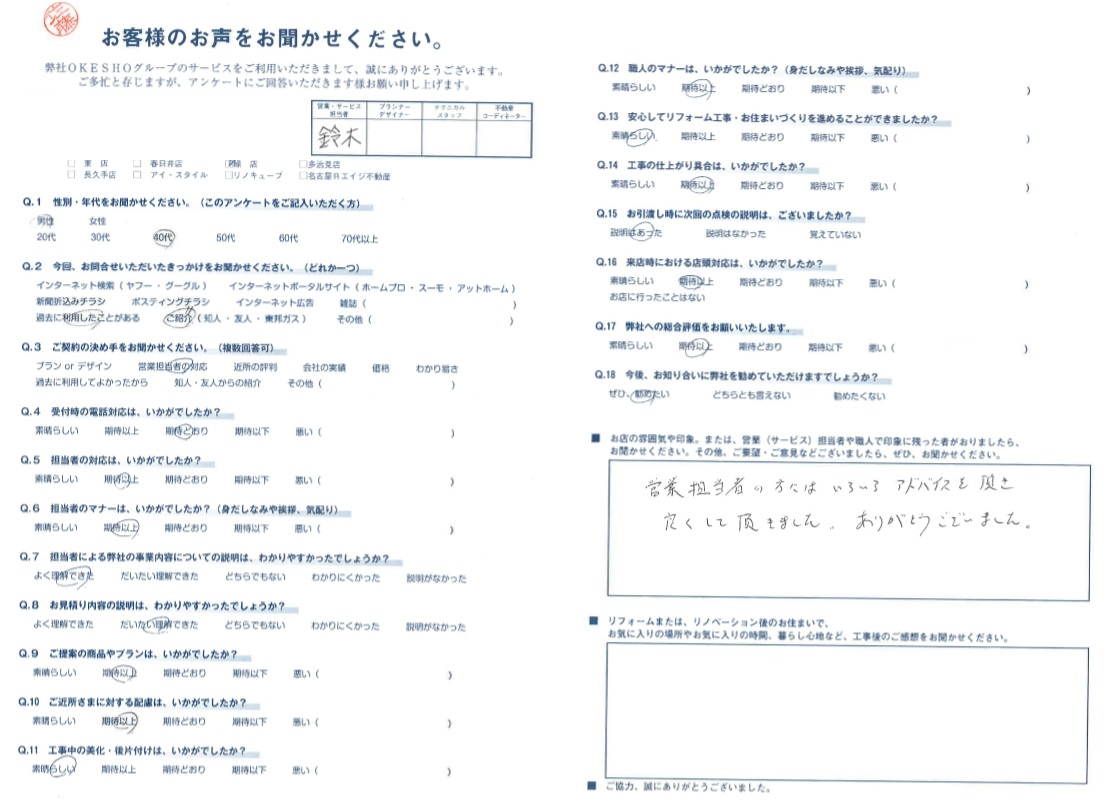 お客様のお声をお聞かせください。
弊社OKESHOグループのサービスをご利用いただきまして、誠にありがとうございます。
ご多忙と存じますが、アンケートにご回答いただきます様お願い申し上げます。
営業・サービス担当者 プランナーデザイナー テクニカルスタッフ 不動産コーディネーター
鈴木
□ 東 店 □ 春日井店 □ 緑 店 □多治見店
□ 長久手店 □ アイ・スタイル □リノキューブ □名古屋日エイジ不動産
Q.1 性別・年代をお聞かせください。（このアンケートをご記入いただく方）
男性 女性
20代 30代 40代 50代 60代 70代以上
Q.2 今回、お問合せいただいたきっかけをお聞かせください。（どれか一つ）
インターネット検索（ ヤフー ・ グーグル ） インターネットポータルサイト（ ホームプロ ・ スーモ ・ アットホーム ）
新聞折込みチラシ ポスティングチラシ インターネット広告 雑誌（ ）
過去に利用したことがある ご紹介（ 知人 ・ 友人 ・ 東邦ガス ） その他（ ）
Q.3 ご契約の決め手をお聞かせください。（複数回答可）
プラン or デザイン 営業担当者の対応 近所の評判 会社の実績 価格 わかり易さ
過去に利用してよかったから 知人・友人からの紹介 その他（ ）
Q.4 受付時の電話対応は、いかがでしたか？
素晴らしい 期待以上 期待どおり 期待以下 悪い（ ）
Q.5 担当者の対応は、いかがでしたか？
素晴らしい 期待以上 期待どおり 期待以下 悪い（ ）
Q.6 担当者のマナーは、いかがでしたか？（身だしなみや挨拶、気配り）
素晴らしい 期待以上 期待どおり 期待以下 悪い（ ）
Q.7 担当者による弊社の事業内容についての説明は、わかりやすかったでしょうか？
よく理解できた だいたい理解できた どちらでもない わかりにくかった 説明がなかった
Q.8 お見積り内容の説明は、わかりやすかったでしょうか？
よく理解できた だいたい理解できた どちらでもない わかりにくかった 説明がなかった
Q.9 ご提案の商品やプランは、いかがでしたか？
素晴らしい 期待以上 期待どおり 期待以下 悪い（ ）
Q.10 ご近所さまに対する配慮は、いかがでしたか？
素晴らしい 期待以上 期待どおり 期待以下 悪い（ ）
Q.11 工事中の美化・後片付けは、いかがでしたか？
素晴らしい 期待以上 期待どおり 期待以下 悪い（ ）
Q.12 職人のマナーは、いかがでしたか？（身だしなみや挨拶、気配り）
素晴らしい 期待以上 期待どおり 期待以下 悪い（ ）
Q.13 安心してリフォーム工事・お住まいづくりを進めることができましたか？
素晴らしい 期待以上 期待どおり 期待以下 悪い（ ）
Q.14 工事の仕上がり具合は、いかがでしたか？
素晴らしい 期待以上 期待どおり 期待以下 悪い（ ）
Q.15 お引渡し時に次回の点検の説明は、ございましたか？
説明はあった 説明はなかった 覚えていない
Q.16 来店時における店頭対応は、いかがでしたか？
素晴らしい 期待以上 期待どおり 期待以下 悪い（ ）
お店に行ったことはない
Q.17 弊社への総合評価をお願いいたします。
素晴らしい 期待以上 期待どおり 期待以下 悪い（ ）
Q.18 今後、お知り合いに弊社を勧めていただけますでしょうか？
ぜひ、勧めたい どちらとも言えない 勧めたくない
■ お店の雰囲気や印象。または、営業（サービス）担当者や職人で印象に残った者がおりましたら、
お聞かせください。その他、ご要望・ご意見などございましたら、ぜひ、お聞かせください。
営業担当者の方にはいろいろアドバイスを頂き
良くして頂きました。ありがとうございました。
■ リフォームまたは、リノベーション後のお住まいで、
お気に入りの場所やお気に入りの時間、暮らし心地など、工事後のご感想をお聞かせください。
■ ご協力、誠にありがとうございました。